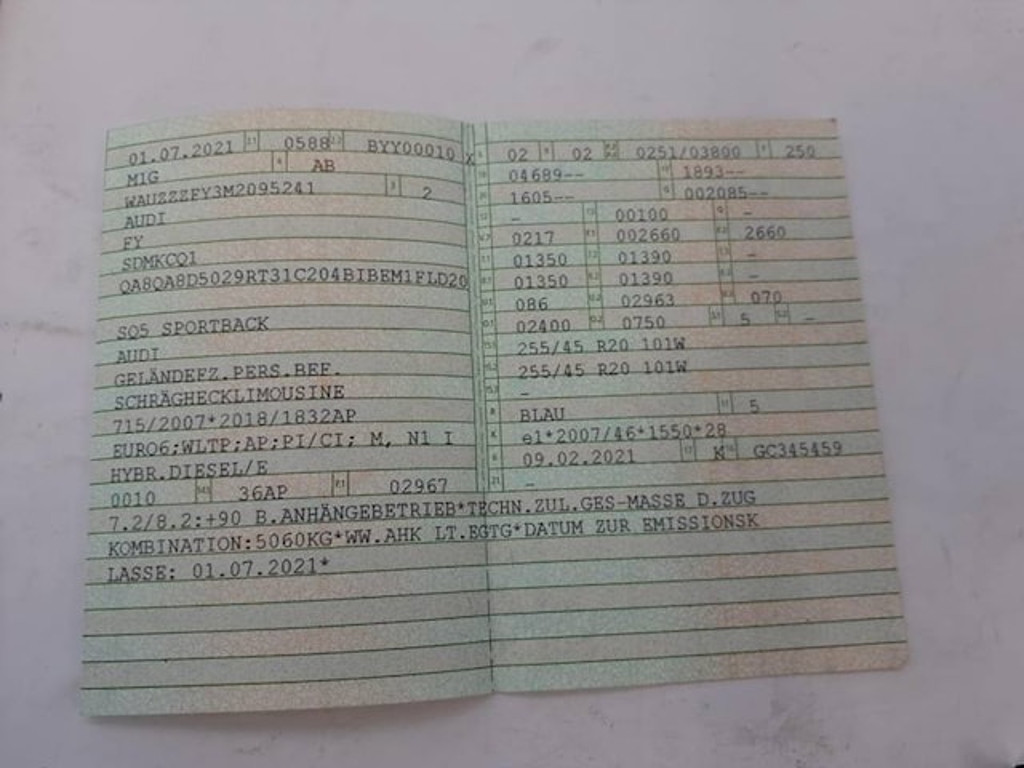 01.07.2021 0588 BYY00010
M1G AB
WAUZZZFY3M2095241 2
AUDI
FY
SDMKCQ1
QA8QA8D5029RT31C204BIBEM1FLD20
SQ5 SPORTBACK
AUDI
GELÄNDEFZ.PERS.BEF.
SCHRÄGHECKLIMOUSINE
715/2007*2018/1832AP
EURO6;WLTP;AP;PI/CI; M, N1 I
HYBR.DIESEL/E
0010 36AP 02967
X 02 02 0251/03800 250
04689-- 1893--
1605-- 002085--
- 00100 -
0217 002660 2660
01350 01390 -
01350 01390 -
086 02963 070
02400 0750 5 -
255/45 R20 101W
255/45 R20 101W
-
BLAU 5
e1*2007/46*1550*28
09.02.2021 K GC345459
-
7.2/8.2:+90 B.ANHÄNGEBETRIEB*TECHN.ZUL.GES-MASSE D.ZUG
KOMBINATION:5060KG*WW.AHK LT.EGTG*DATUM ZUR EMISSIONSK
LASSE: 01.07.2021*